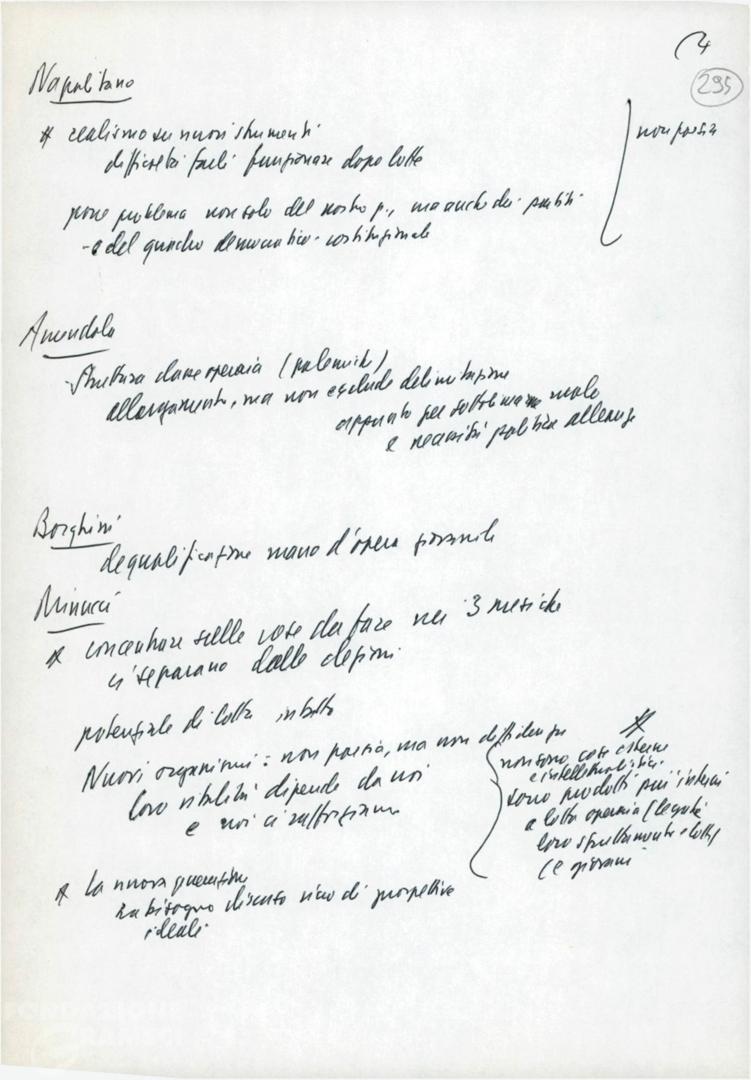 4
295
Napolitano
* realismo su nuovi strumenti
difficoltà farli funzionare dopo lotte
non poesia
pone problema non solo del nostro p., ma anche dei partiti
- e del quadro democratico-costituzionale
Amendola
- struttura classe operaia (polemiche)
allargamento, ma non esclude delimitazione
appunto per sottolineare ruolo
e necessità politica alleanze
Borghini
dequalificazione mano d'opera giovanile
Minucci
* concentrare sulle cose da fare nei 3 mesi che
ci separano dalle elezioni
potenziale di lotta intatto
Nuovi organismi: non poesia, ma non diffidenza
loro vitalità dipende da noi
e noi ci rafforziamo
*
non sono cose esterne
e intellettualistiche
sono prodotti più interni
a lotta operaia (legati
loro sfruttamento e lotta)
(e giovani
* la nuova generazione
ha bisogno discorso ricco di prospettive
ideali
FONDAZIONE
GRAMSCI